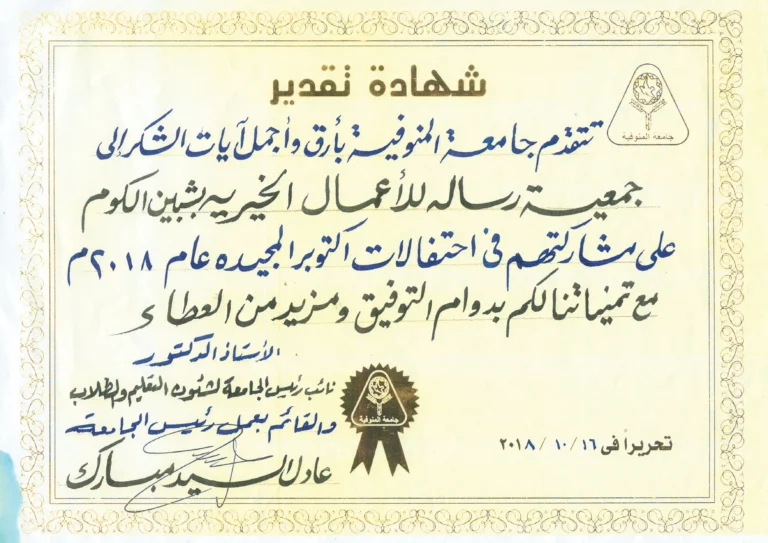 شهادة تقدير
جامعة المنوفية
تتقدم جامعة المنوفية بأرق وأجمل آيات الشكر إلى
جمعية رساله للأعمال الخيريه بشبين الكوم
على مشاركتهم فى احتفالات اكتوبر المجيده عام ٢٠١٨م
مع تمنياتنا لكم بدوام التوفيق ومزيد من العطاء
الأستاذ الدكتور
نائب رئيس الجامعة لشئون التعليم والطلاب
والقائم بعمل رئيس الجامعة
عادل السيد مبارك
جامعة المنوفية
تحريراً فى ١٦ / ١٠ / ٢٠١٨